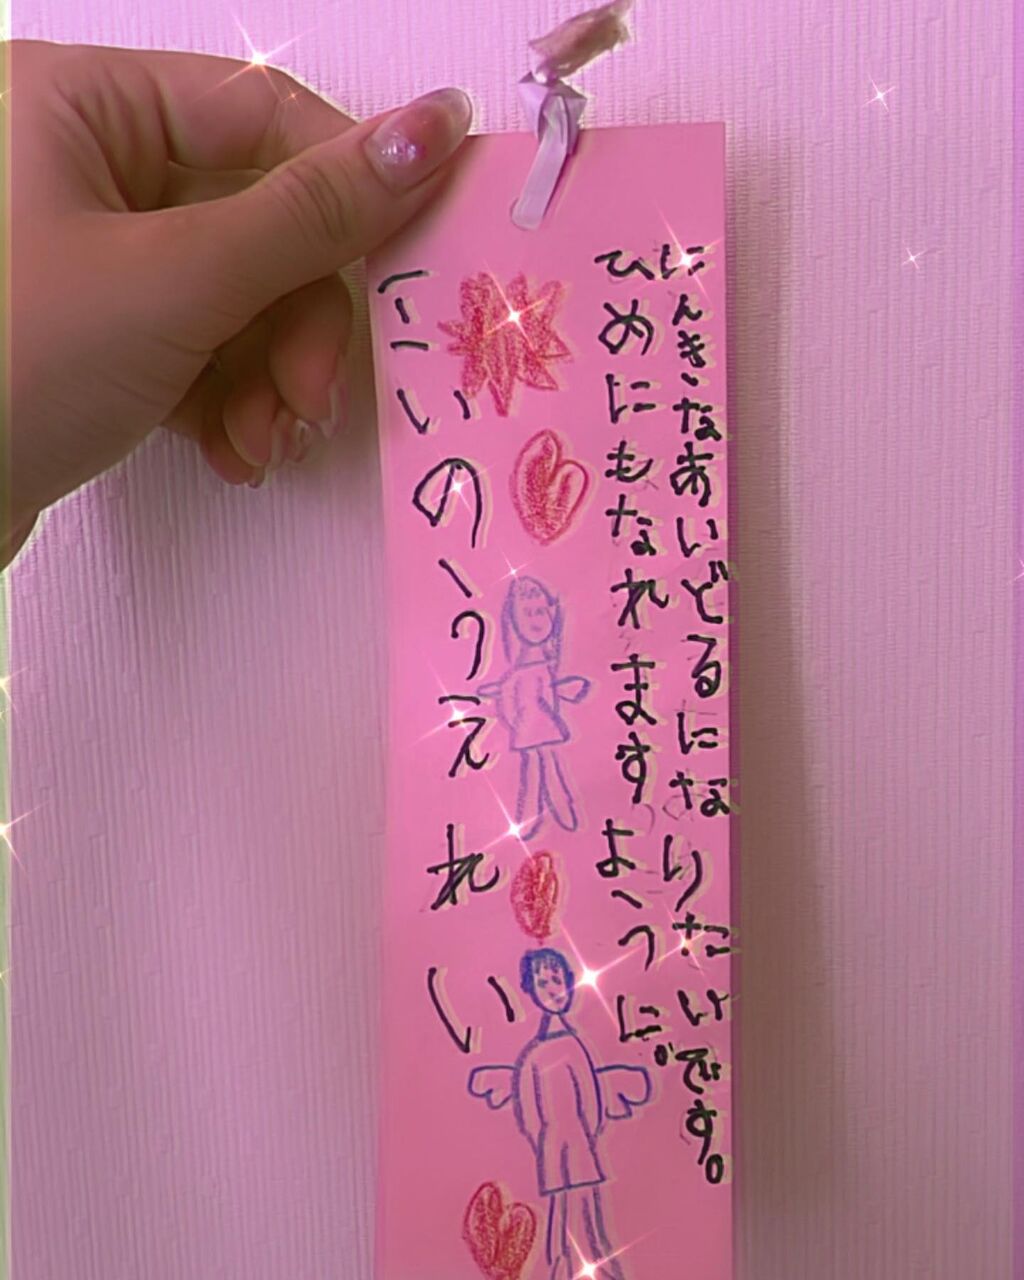 にんきなあいどるになりたいです。
ひめにもなれますように。
こいのうえれい